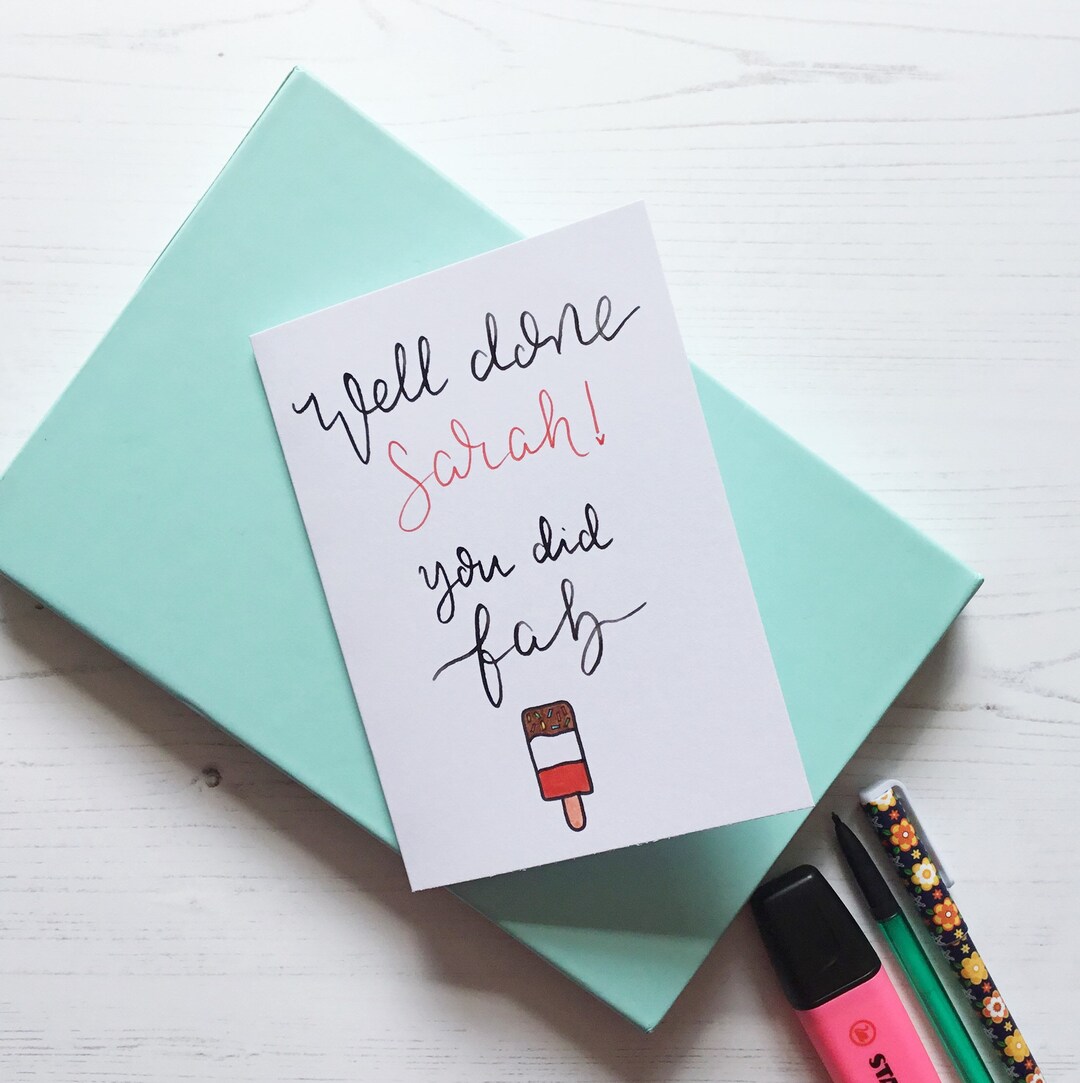 Well done
Sarah!
you did
fab
STA